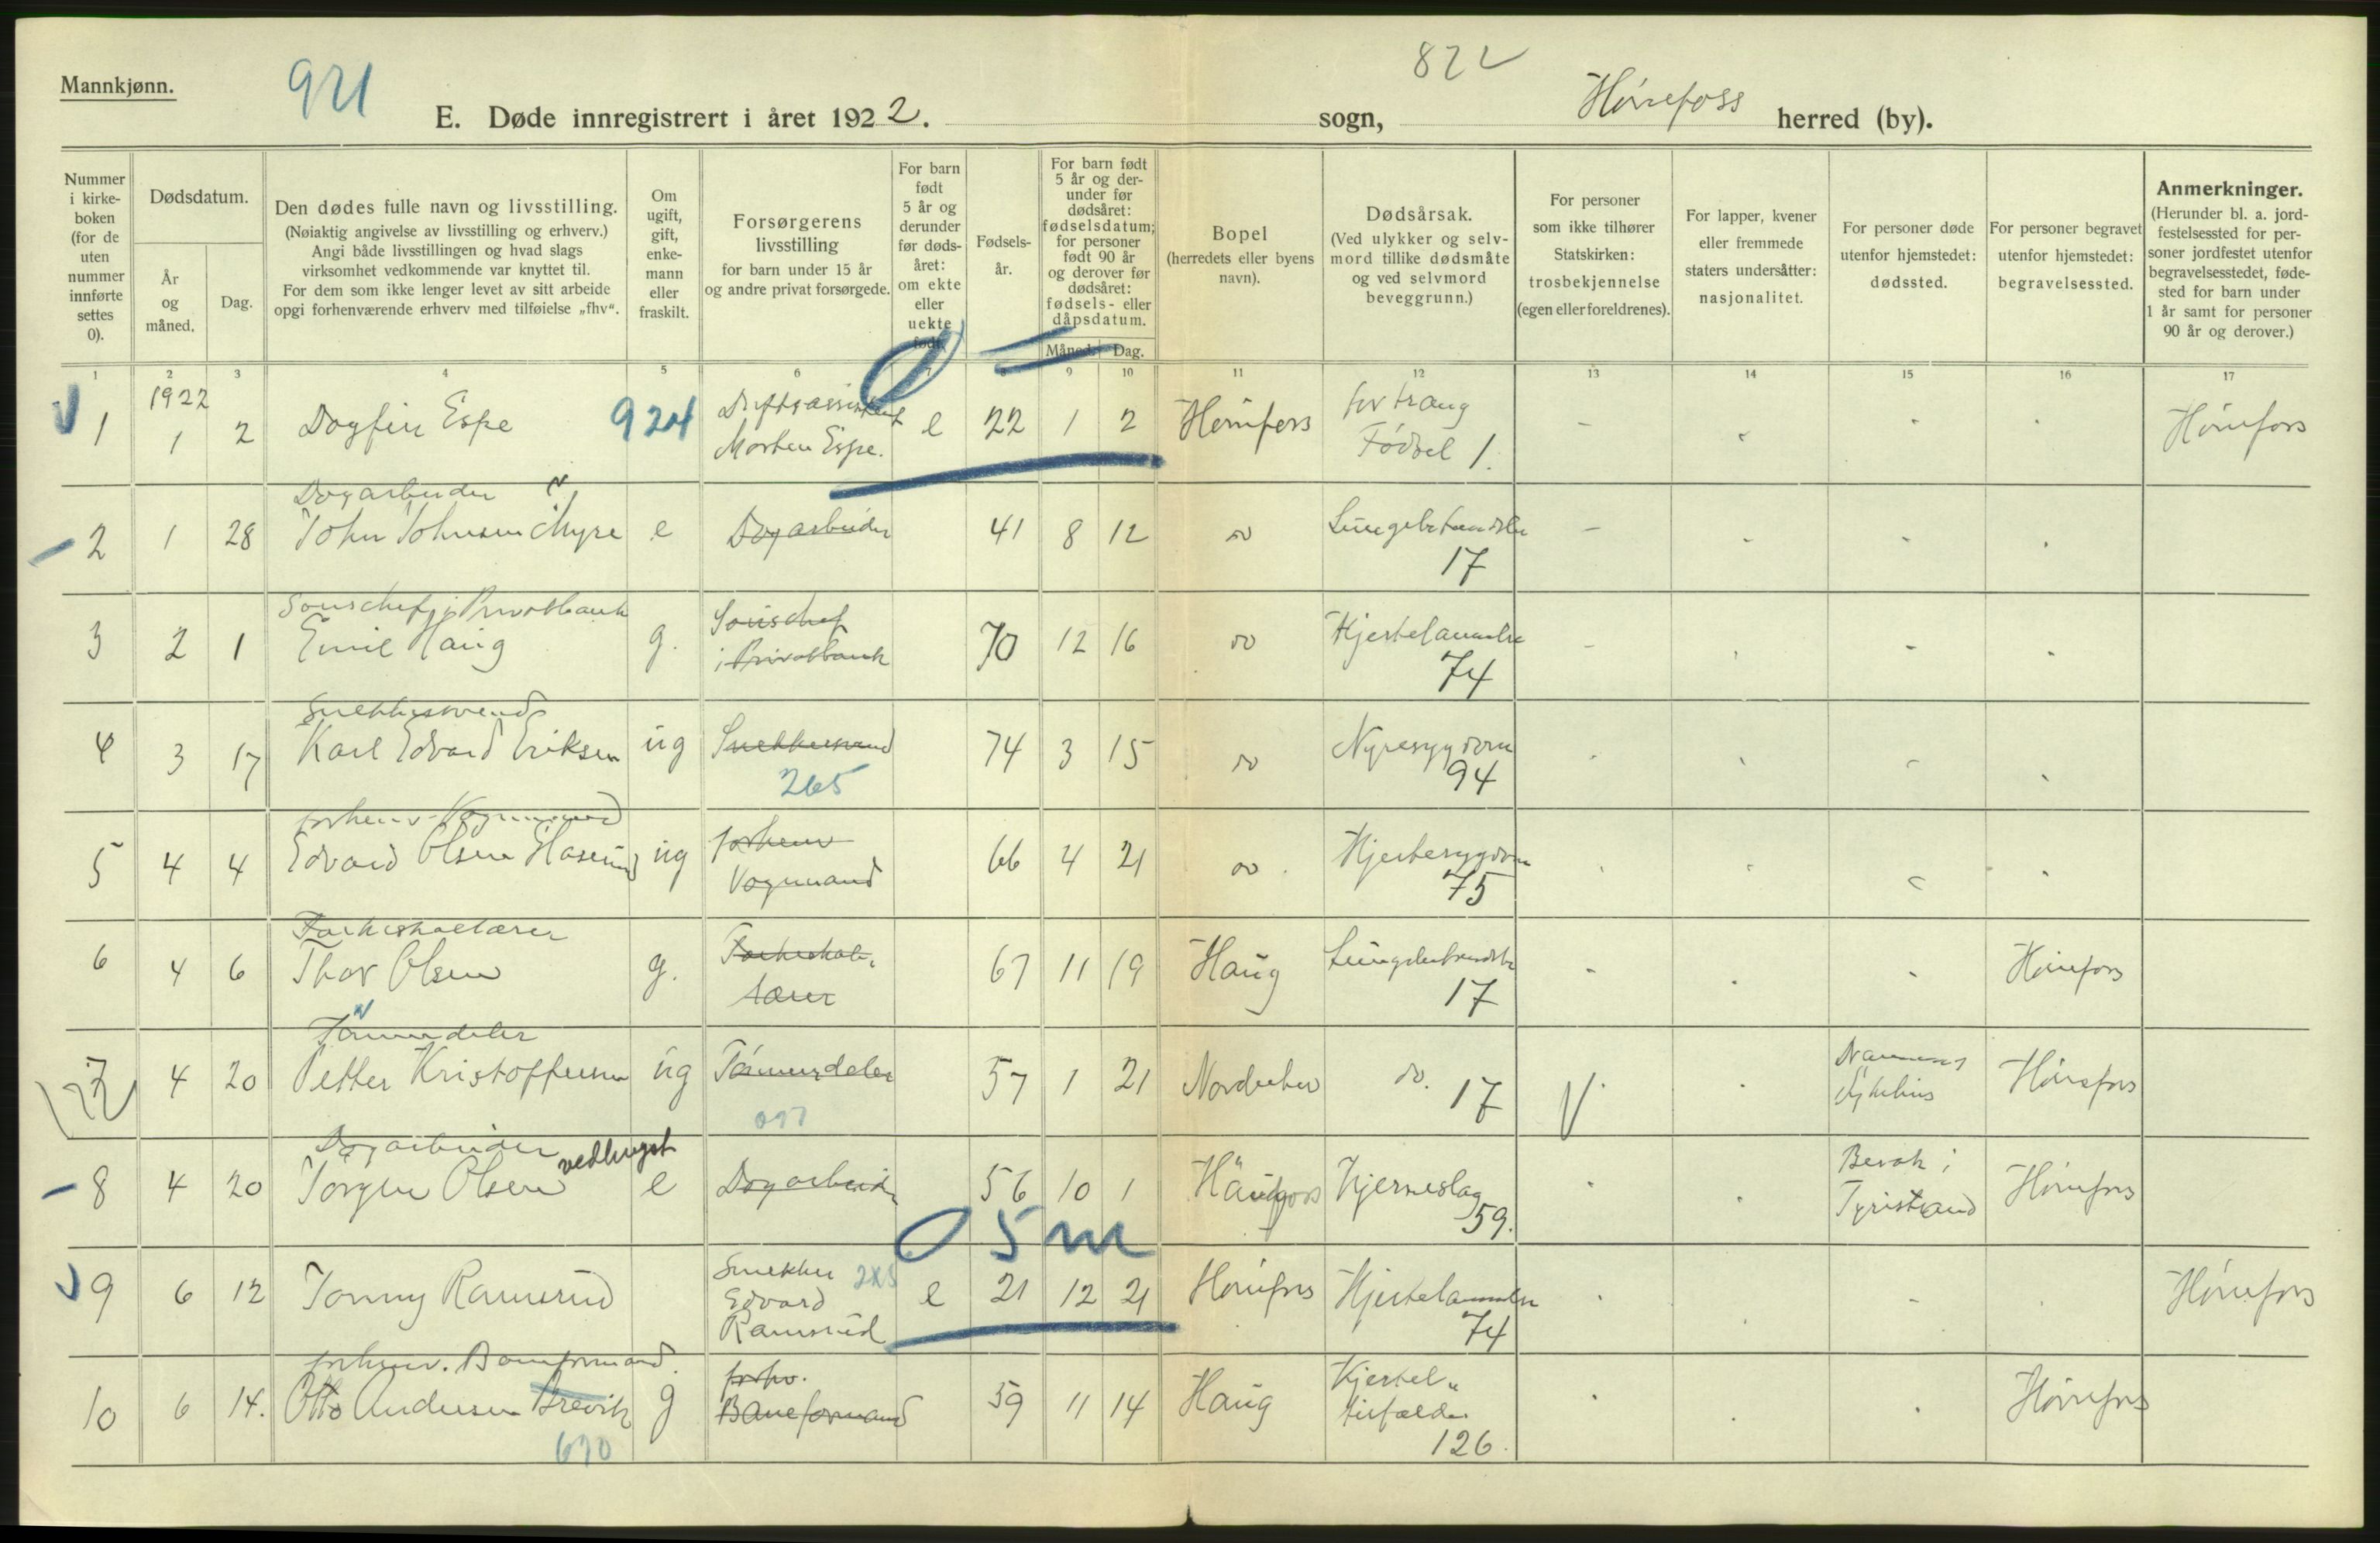 Mannkjønn.
921
822
E. Døde innregistrert i året 1922. sogn, Hønefoss herred (by).
Nummer i kirke-boken (for de uten nummer innførte settes 0).
Dødsdatum.
År og måned.
Dag.
Den dødes fulle navn og livsstilling.
(Nøiaktig angivelse av livsstilling og erhverv.)
Angi både livsstillingen og hvad slags
virksomhet vedkommende var knyttet til.
For dem som ikke lenger levet av sitt arbeide
opgi forhenværende erhverv med tilføielse „fhv“.
Om ugift, gift, enke-mann eller fraskilt.
Forsørgerens livsstilling
for barn under 15 år
og andre privat forsørgede.
For barn født 5 år og derunder før døds-året: om ekte eller uekte født.
Fødsels-år.
For barn født 5 år og der-under før dødsåret: fødselsdatum; for personer født 90 år og derover før dødsåret: fødsels- eller dåpsdatum.
Måned. Dag.
Bopel
(herredets eller byens navn).
Dødsårsak.
(Ved ulykker og selv-mord tillike dødsmåte og ved selvmord beveggrunn.)
For personer som ikke tilhører Statskirken: trosbekjennelse (egen eller foreldrenes).
For lapper, kvener eller fremmede staters undersåtter: nasjonalitet.
For personer døde utenfor hjemstedet: dødssted.
For personer begravet utenfor hjemstedet: begravelsessted.
Anmerkninger.
(Herunder bl. a. jord-festelsessted for per-soner jordfestet utenfor begravelsesstedet, føde-sted for barn under 1 år samt for personer 90 år og derover.)
1 2 3 4 5 6 7 8 9 10 11 12 13 14 15 16 17
1922
1 1 2 Dagfin Espe 924 Driftsassistent e 22 1 2 Hønefoss for trang Hønefoss
Morten Espe. Fødsel 1.
Dagarbeider
2 1 28 John Johnsen Myre e Dagarbeider 41 8 12 do Lungebetændelse
17
Souschef i Privatbank
3 2 1 Emil Haug g. Souschef 70 12 16 do Hjertelammelse
i Privatbank 74
Snekkersvend
4 3 17 Karl Edvard Eriksen ug Snekkersvend 74 3 15 do Nyresygdom
265 94
forhenv. Vognmand
5 4 4 Edvard Olsen ug forhenv 66 4 21 do. Hjertesygdom
Vognmand 75
6 4 6 Thor Olsen g. 67 11 19 Haug Lungebetændelse Hønefoss
lærer 17
Tømmerdeler
7 4 20 Petter Kristoffersen ug Tømmerdeler 57 1 21 Norderhov do. 17 Hønefoss
097 Sykehus
Dagarbeider vedhugst
8 4 20 Jørgen Olsen e Dagarbeider 56 10 1 Hønefoss Hjerneslag Besøk i Hønefoss
59. Tyristrand
0 5 m
9 6 12 Jonny Ramsrud Snekker 265 e 21 12 21 Hønefoss Hjertelammelse Hønefoss
Edvard 74
Ramsrud
forhenv. Baneformand.
10 6 14. Otto Andersen Brevik g forhv. 59 11 14 Haug Kjertel- Hønefoss
670 Baneformand tilfælde
126.